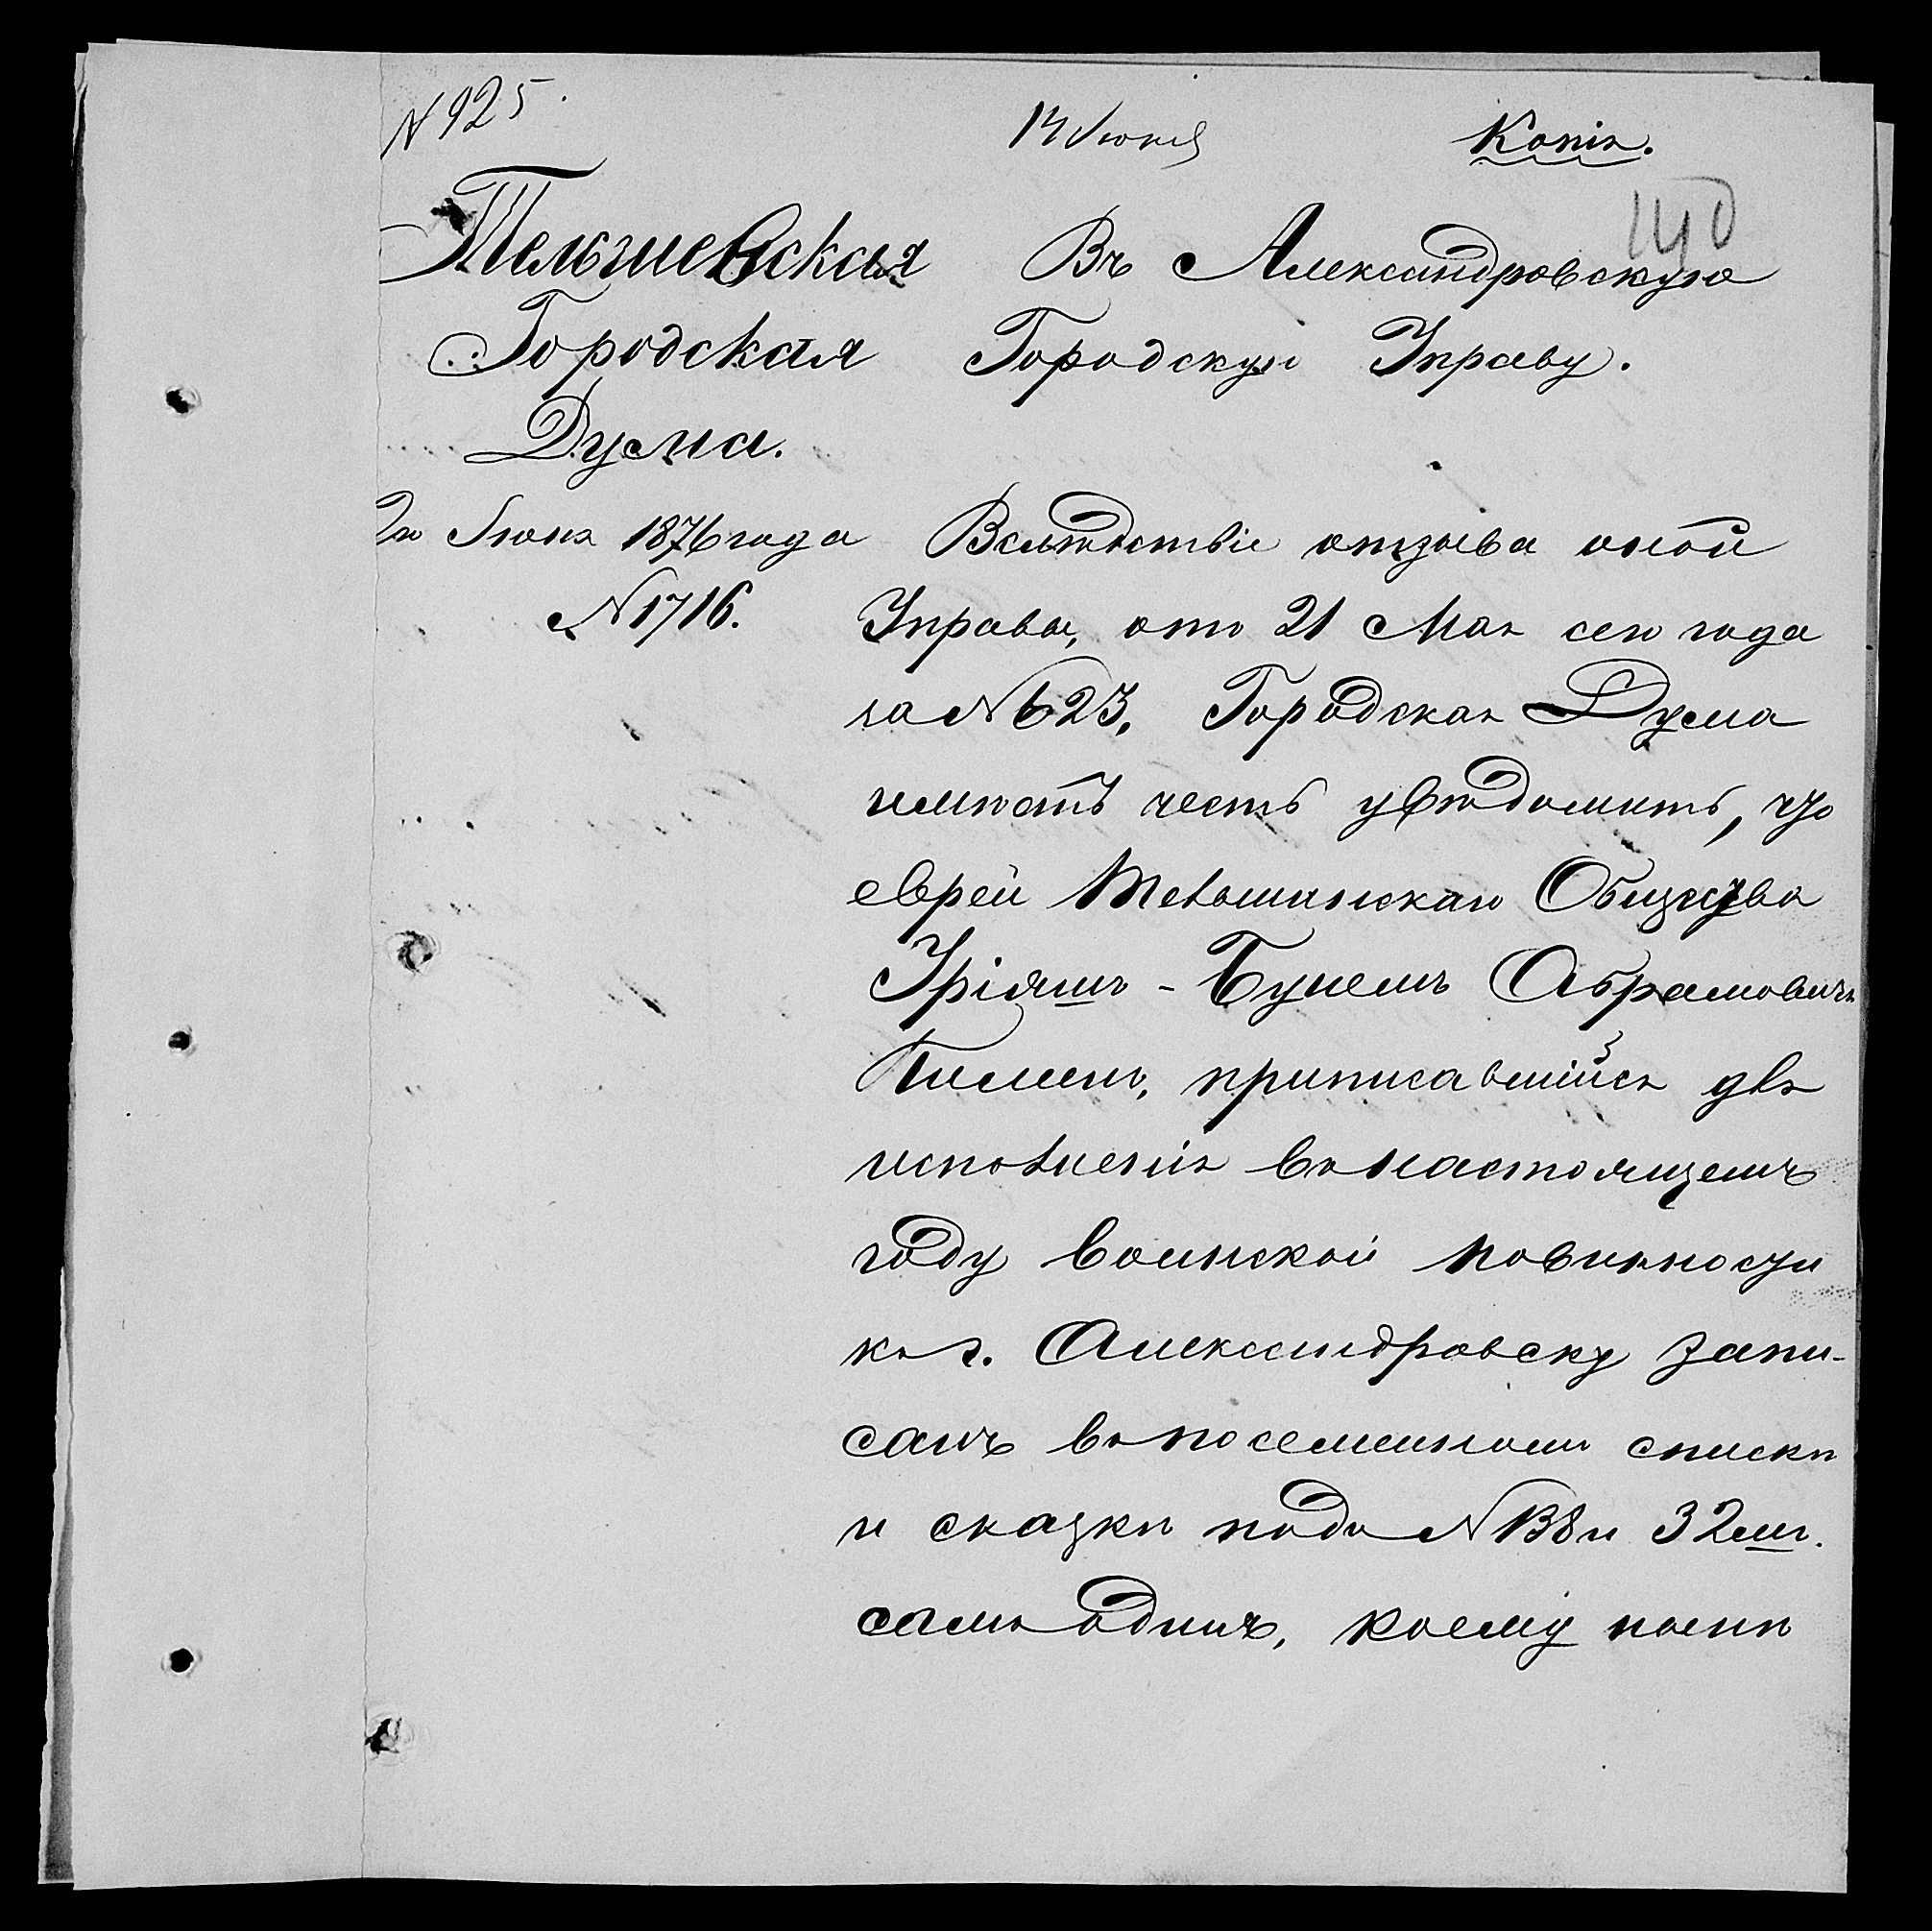 № 925.
14 Июня
Копія.
140
Тельшевская
Городская
Дума.
2го Июня 1876 года
№ 1716.
Въ Александровскую
Городскую Управу.
Вслѣдствіе отзыва оной
Управы, отъ 21 Мая сего года
за № 623, Городская Дума
имѣетъ честь увѣдомить, что
еврей Тельшинскаго Общества
Абрамовичъ
приписавшійся для
исполненія въ настоящемъ
году воинской повинности
къ г. Александровску запи-
санъ въ посемейномъ спискѣ
и сказкѣ подъ № 138 и 32мъ.
самъ одинъ, коему нынѣ